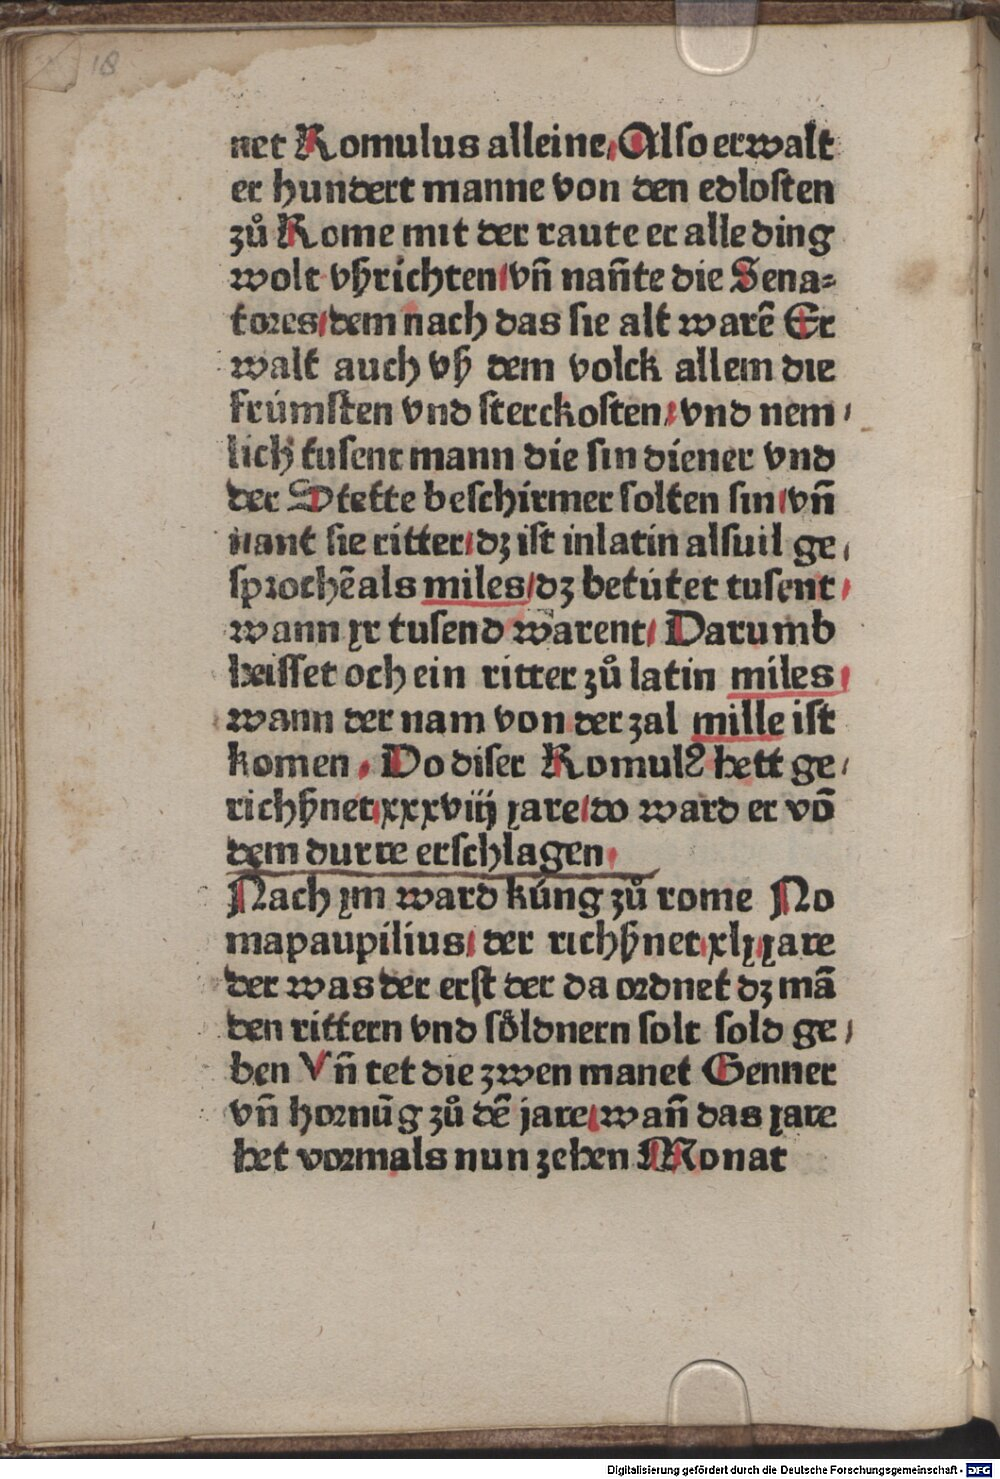 18
net Romulus alleine, Also erwalt
er hundert manne von den edlosten
zů Rome mit der raute er alle ding
wolt vßrichten/ vñ nañte die Sena-
tores/ dem nach das sie alt warẽ Er
walt auch vß dem volck allem die
frúmsten vnd sterckosten, vnd nem,
lich tusent mann die sin diener vnd
der Stette beschirmer solten sin/ vñ
nant sie ritter/ dz ist inlatin alsuil ge,
sprochẽ als miles/ dz betútet tusent
wann yr tusend warent/ Darumb
heisset och ein ritter zů latin miles
wann der nam von der zal mille ist
komen. Do diser Romulꝰ hett ge,
richßnet xxxviij yare/ do ward er võ
dem durre erschlagen.
Nach ym ward kúng zů rome No
mapaupilius, der richßnet xly yare
der was der erst der da ordnet dz mã
den rittern vnd sőldnern solt sold ge,
ben Vñ tet die zwen manet Genner
vñ hornũg zů dẽ jare/ wañ das yare
het vormals nun zehen Monat
Digitalisierung gefördert durch die Deutsche Forschungsgemeinschaft - DFG